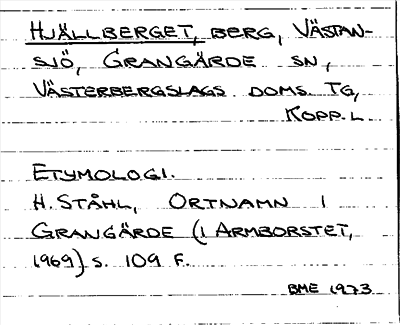 HJÄLLBERGET, BERG, VÄSTAN-
SJÖ, GRANGÄRDE SN,
VÄSTERBERGSLAGS DOMS. TG,
KOPP. L.
ETYMOLOGI.
H. STÅHL, ORTNAMN I
GRANGÄRDE (I ARMBORSTET,
1969) S. 109 F.
BME 1973